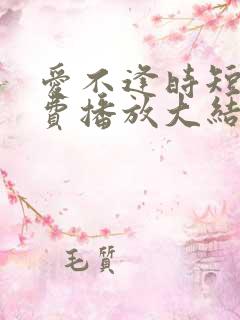 愛不逢時短
費播放大結
毛質